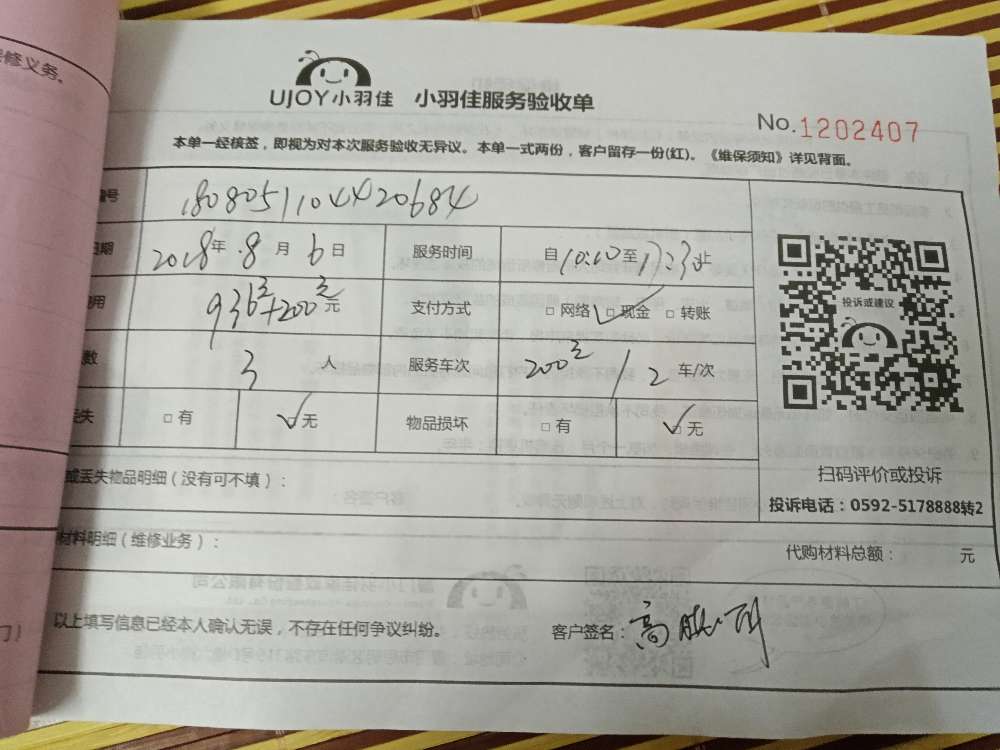 修义务。
UJOY小羽佳 小羽佳服务验收单
No.1202407
本单一经核签，即视为对本次服务验收无异议。本单一式两份，客户留存一份(红)。《维保须知》详见背面。
编号 1808051104420684
日期 2018年 8月 6日 服务时间 自10:10至13:30止
用 936元+200元 元 支付方式 □ 网络 □ 现金 □ 转账
数 3 人 服务车次 200元 1 2 车/次
丢失 □ 有 ✓无 物品损坏 □ 有 ✓□ 无
投诉或建议
扫码评价或投诉
投诉电话：0592-5178888转2
或丢失物品明细（没有可不填）：
材料明细（维修业务）： 代购材料总额： 元
以上填写信息已经本人确认无误，不存在任何争议纠纷。 客户签名：高
门）